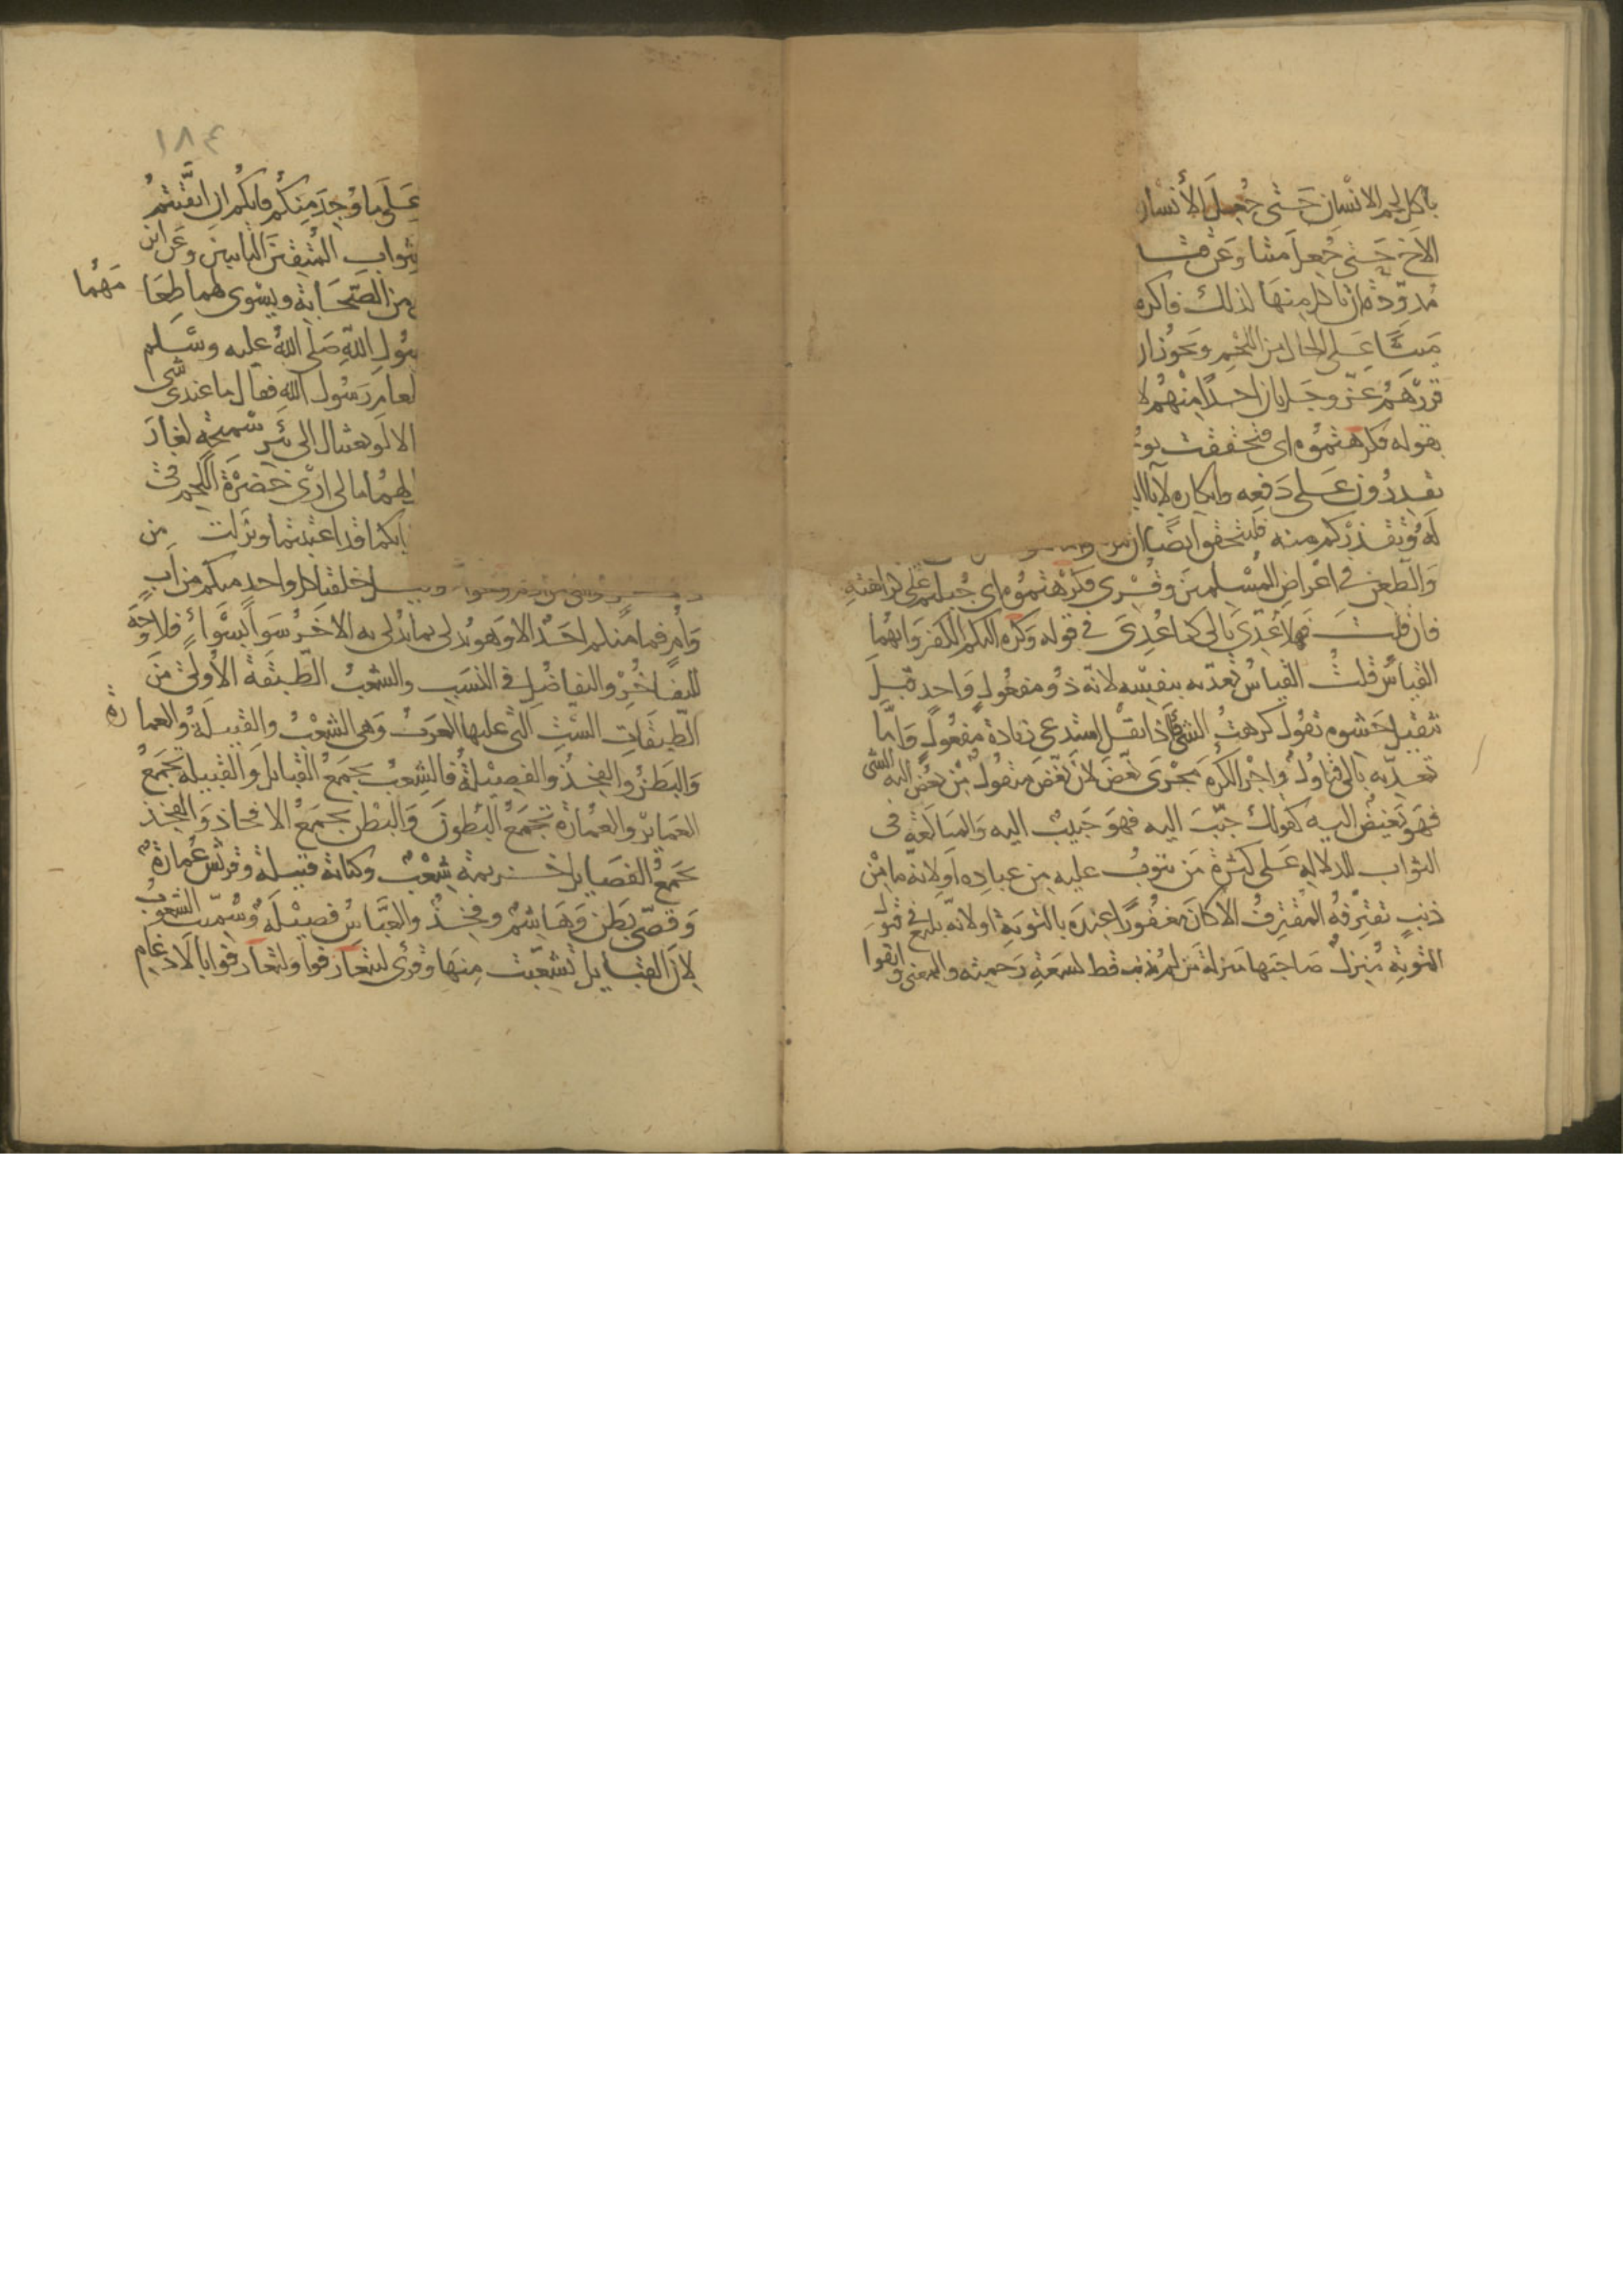 بأكل لحم الانسان حتى جعل الأنسان
الاخ حتى جعل ميتا وعن قتا
مدودة ان تاكل منها لذلك فاكره
ميتا على الحال من اللحم ويجوز ان
قررهم عز وجل بان احدا منهم لا
بقوله فكرهتموه اى فتحققت بو
تقدرون على دفعه وانكاره لابا
له وتقذركم منه فليتحقق ايضا ان
والطعن في اعراض المسلمين وقرى فكرهتموه اى جبلتم على كراهته
فان قلت فهلا عدى بالى كما عدى في قوله وكره اليكم الكفر وايهما
القياس قلت القياس تعديه بنفسه لانه ذو مفعول واحد قبل
تثقيل حشوه تقول كرهت الشئ فاذا ثقل استدعى زيادة مفعول واما
تعديه بالى فتاول واجرالكره مجرى بغض لان بغض منقول من بغض اليه الشى
فهو بغيض اليه كقولك حبب اليه فهو حبيب اليه والمبالغة فى
التواب للدلاله على كثرة من يتوب عليه من عباده اولانه ما من
ذنب تقترفه المقترف الا كان مغفورا عنده بالتوبة اولانه بليغ في قبول
التوبة منزل صاجبها منزلة من لم يذنب قط لسعة رحمته والمعنى واتقوا
١٨٤
على ما وجد منكم فانكم ان اتقيتم
بثواب المتقين التايبين وعن ابن
من الصحابة ويسوى لهما طعا مهما
سول الله صلى الله عليه وسلم
لعام رسول الله فقال ما عندى شى
الا لو بعثنا الى بئر سميحة لغار
لهما مالى ارى خضرة اللحم فى
انكما قد اغتبتما ونزلت من
خلقنا كل واحد منكم من اب
وام فما منكم احد الا وهو يدلى بما يدلى به الاخر سوا بسواء فلا وجه
للتفاخر والتفاضل في النسب والشعب الطبقة الأولى من
الطبقات الست التى عليها العرب وهى الشعب والقبيلة والعمارة
والبطن والفخذ والفصيلة فالشعب يجمع القبائل والقبيلة تجمع
العمائر والعمارة تجمع البطون والبطن يجمع الافخاذ والفخذ
يجمع الفصايل خزيمة شعب وكنانة قبيلة وقريش عمارة
وقصى بطن وهاشم وفخذ والعباس فصيلة وسميت الشعوب
لان القبايل تشعبت منها وقرى لتتعارفوا ولتعارفوا بالادغام